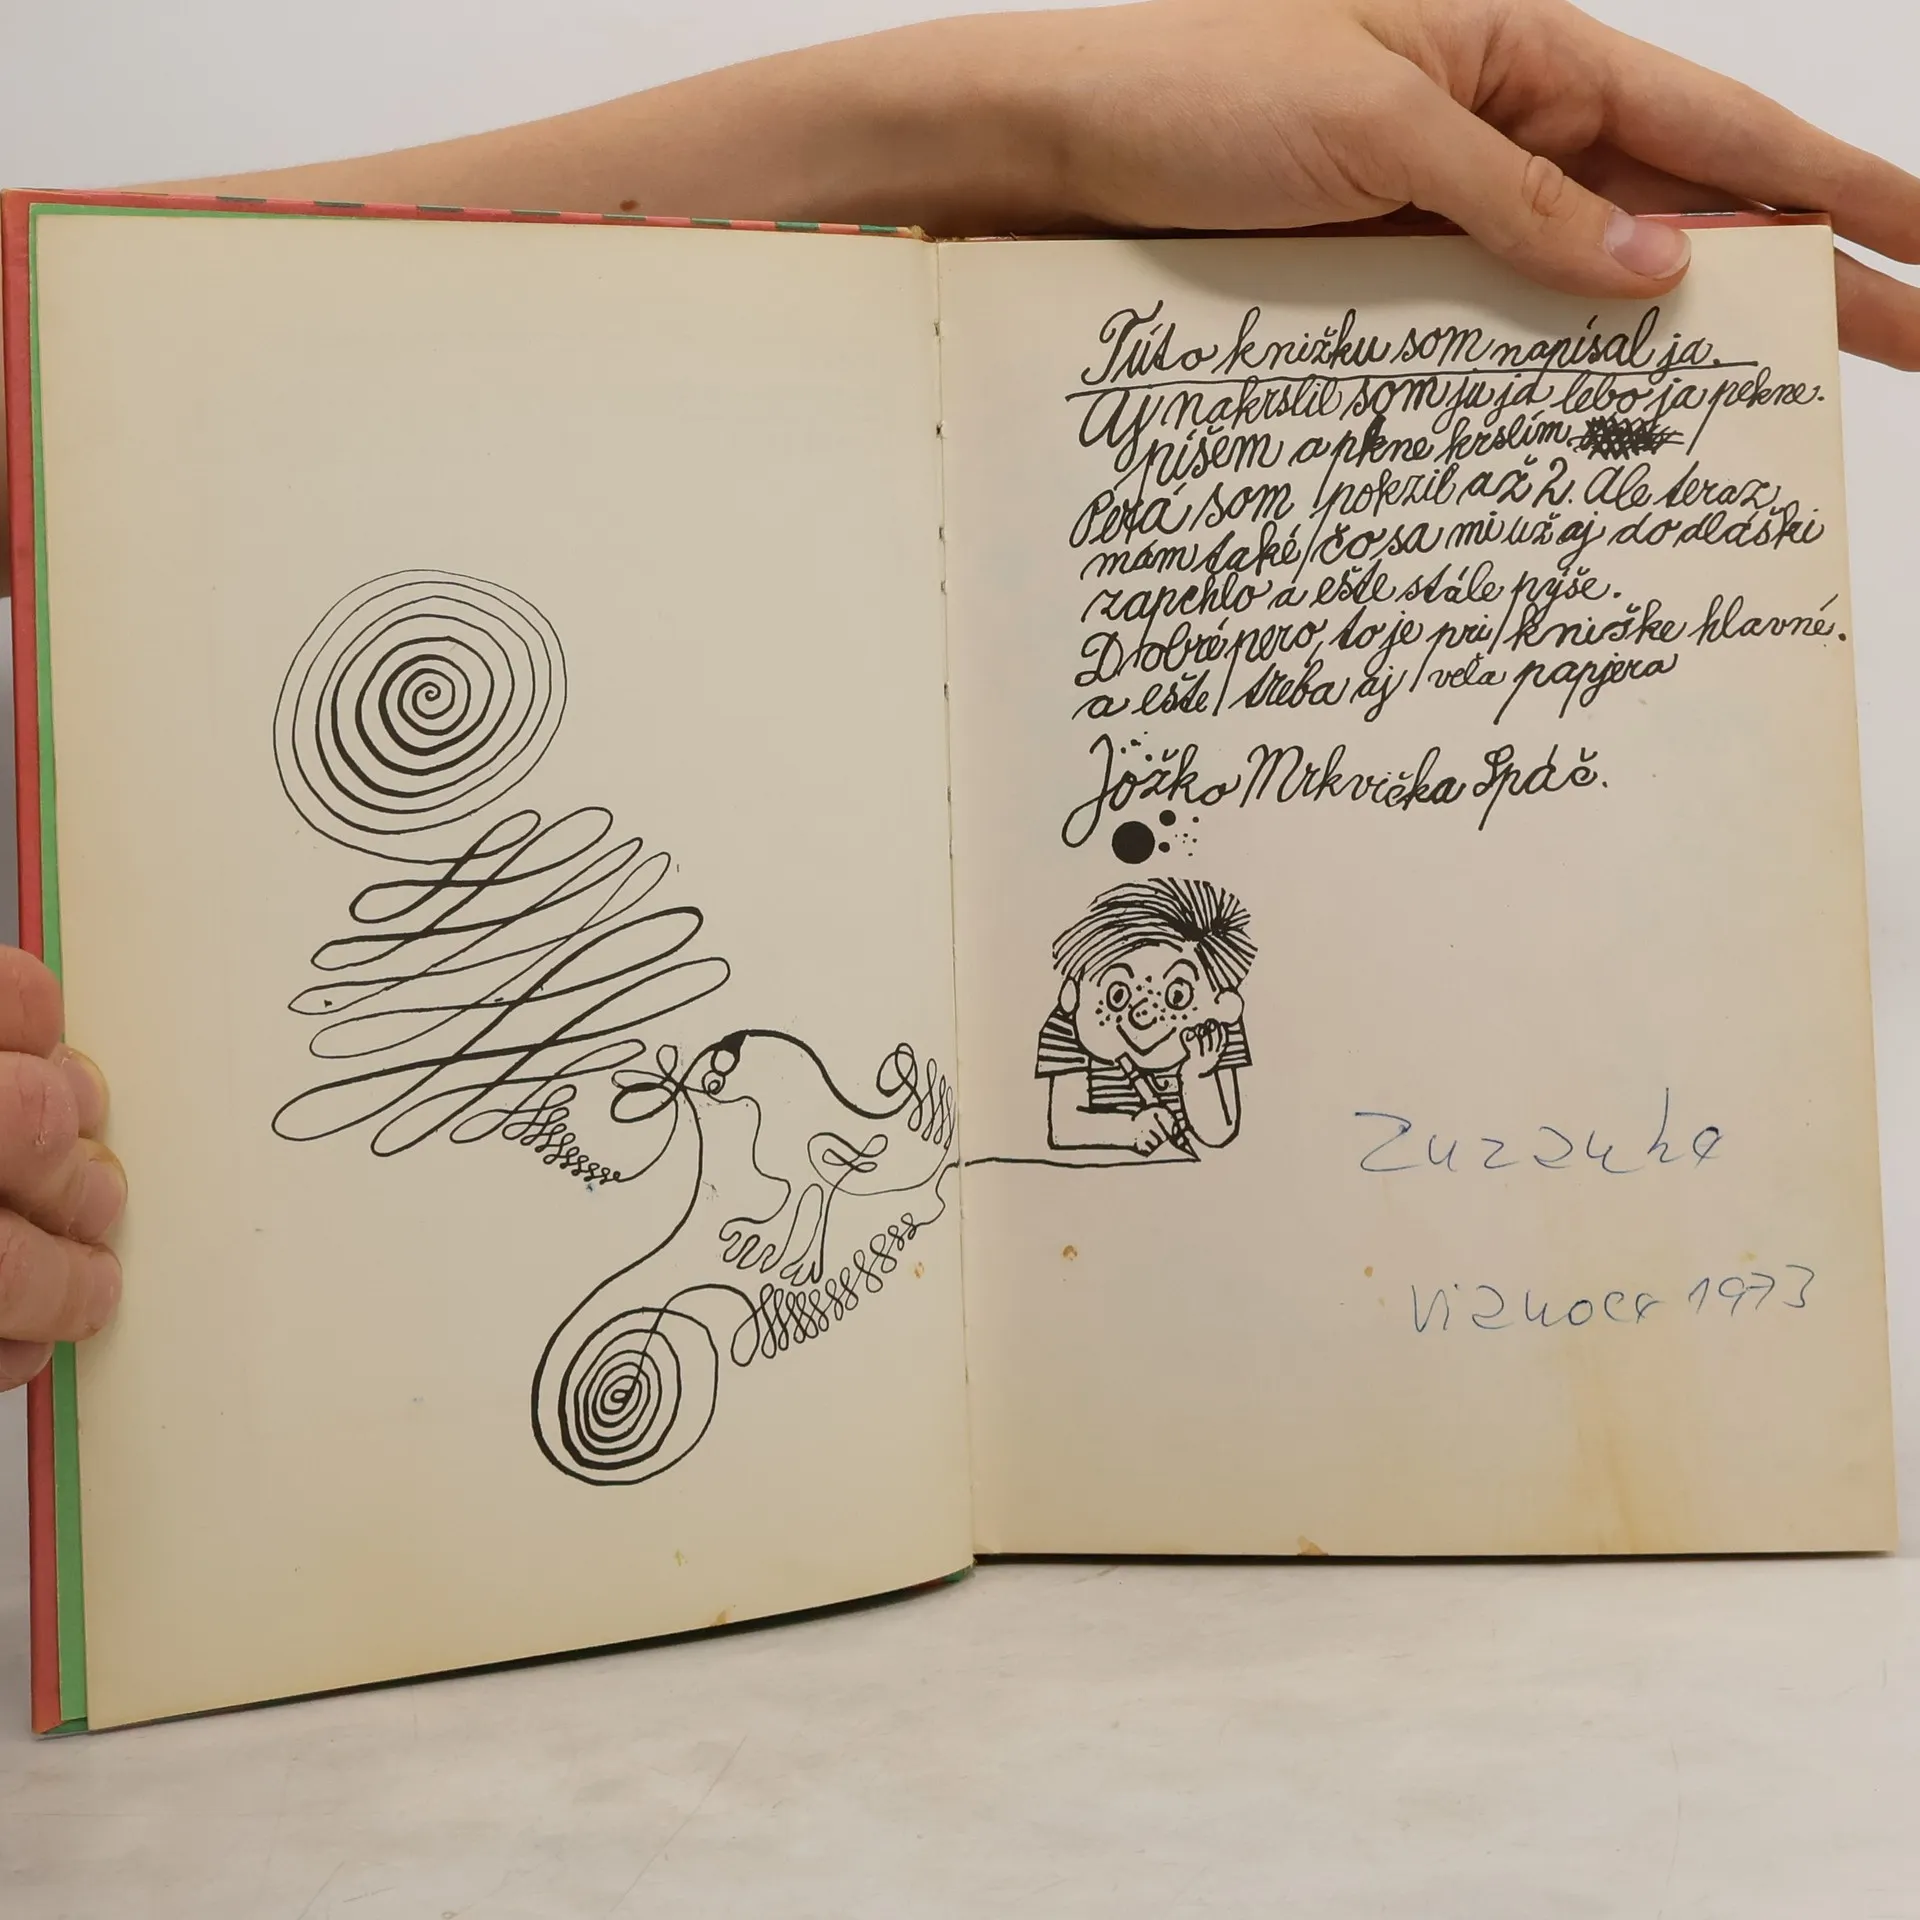 Túto knižku som napísal ja.
Aj nakrslil som ju ja lebo ja pekne.
píšem a pkne krslím
Perá som pokzil až 2. Ale teraz
mám také čo sa mi už aj do dláški
zapchlo a ešte stále pýše.
Dobré pero, to je pri kniške hlavné.
a ešte treba aj veľa papjera
Jožko Mrkvička Spáč.
Zuzzuka
Vianoce 1973